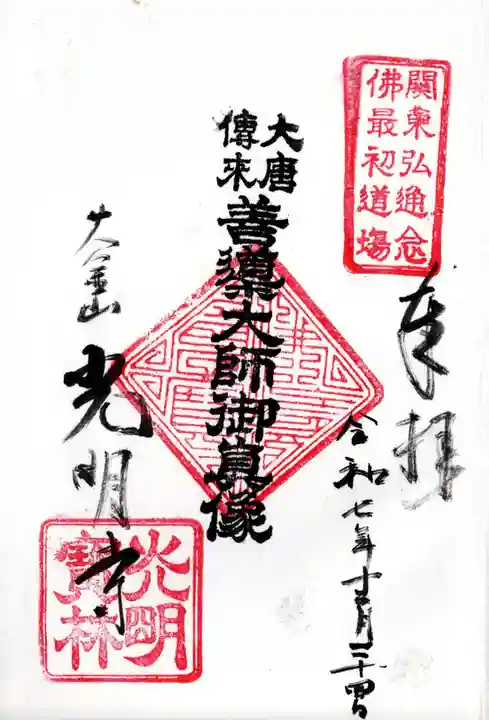 關東弘通念
佛最初道場
奉拝
令和七年十二月二十四日
大唐
傳来
善導大師御真像
大金山
光明寺
光明
寶林